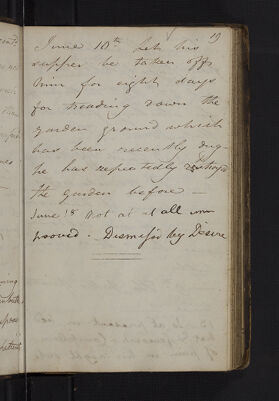 19
June 10th Let his
supper be taken off
him for eight days
for treading down the
garden ground which
has been recently dug
he has repeatedly
the garden before —
June 18 Not at all im
prooved. Dismiss'd by Desire